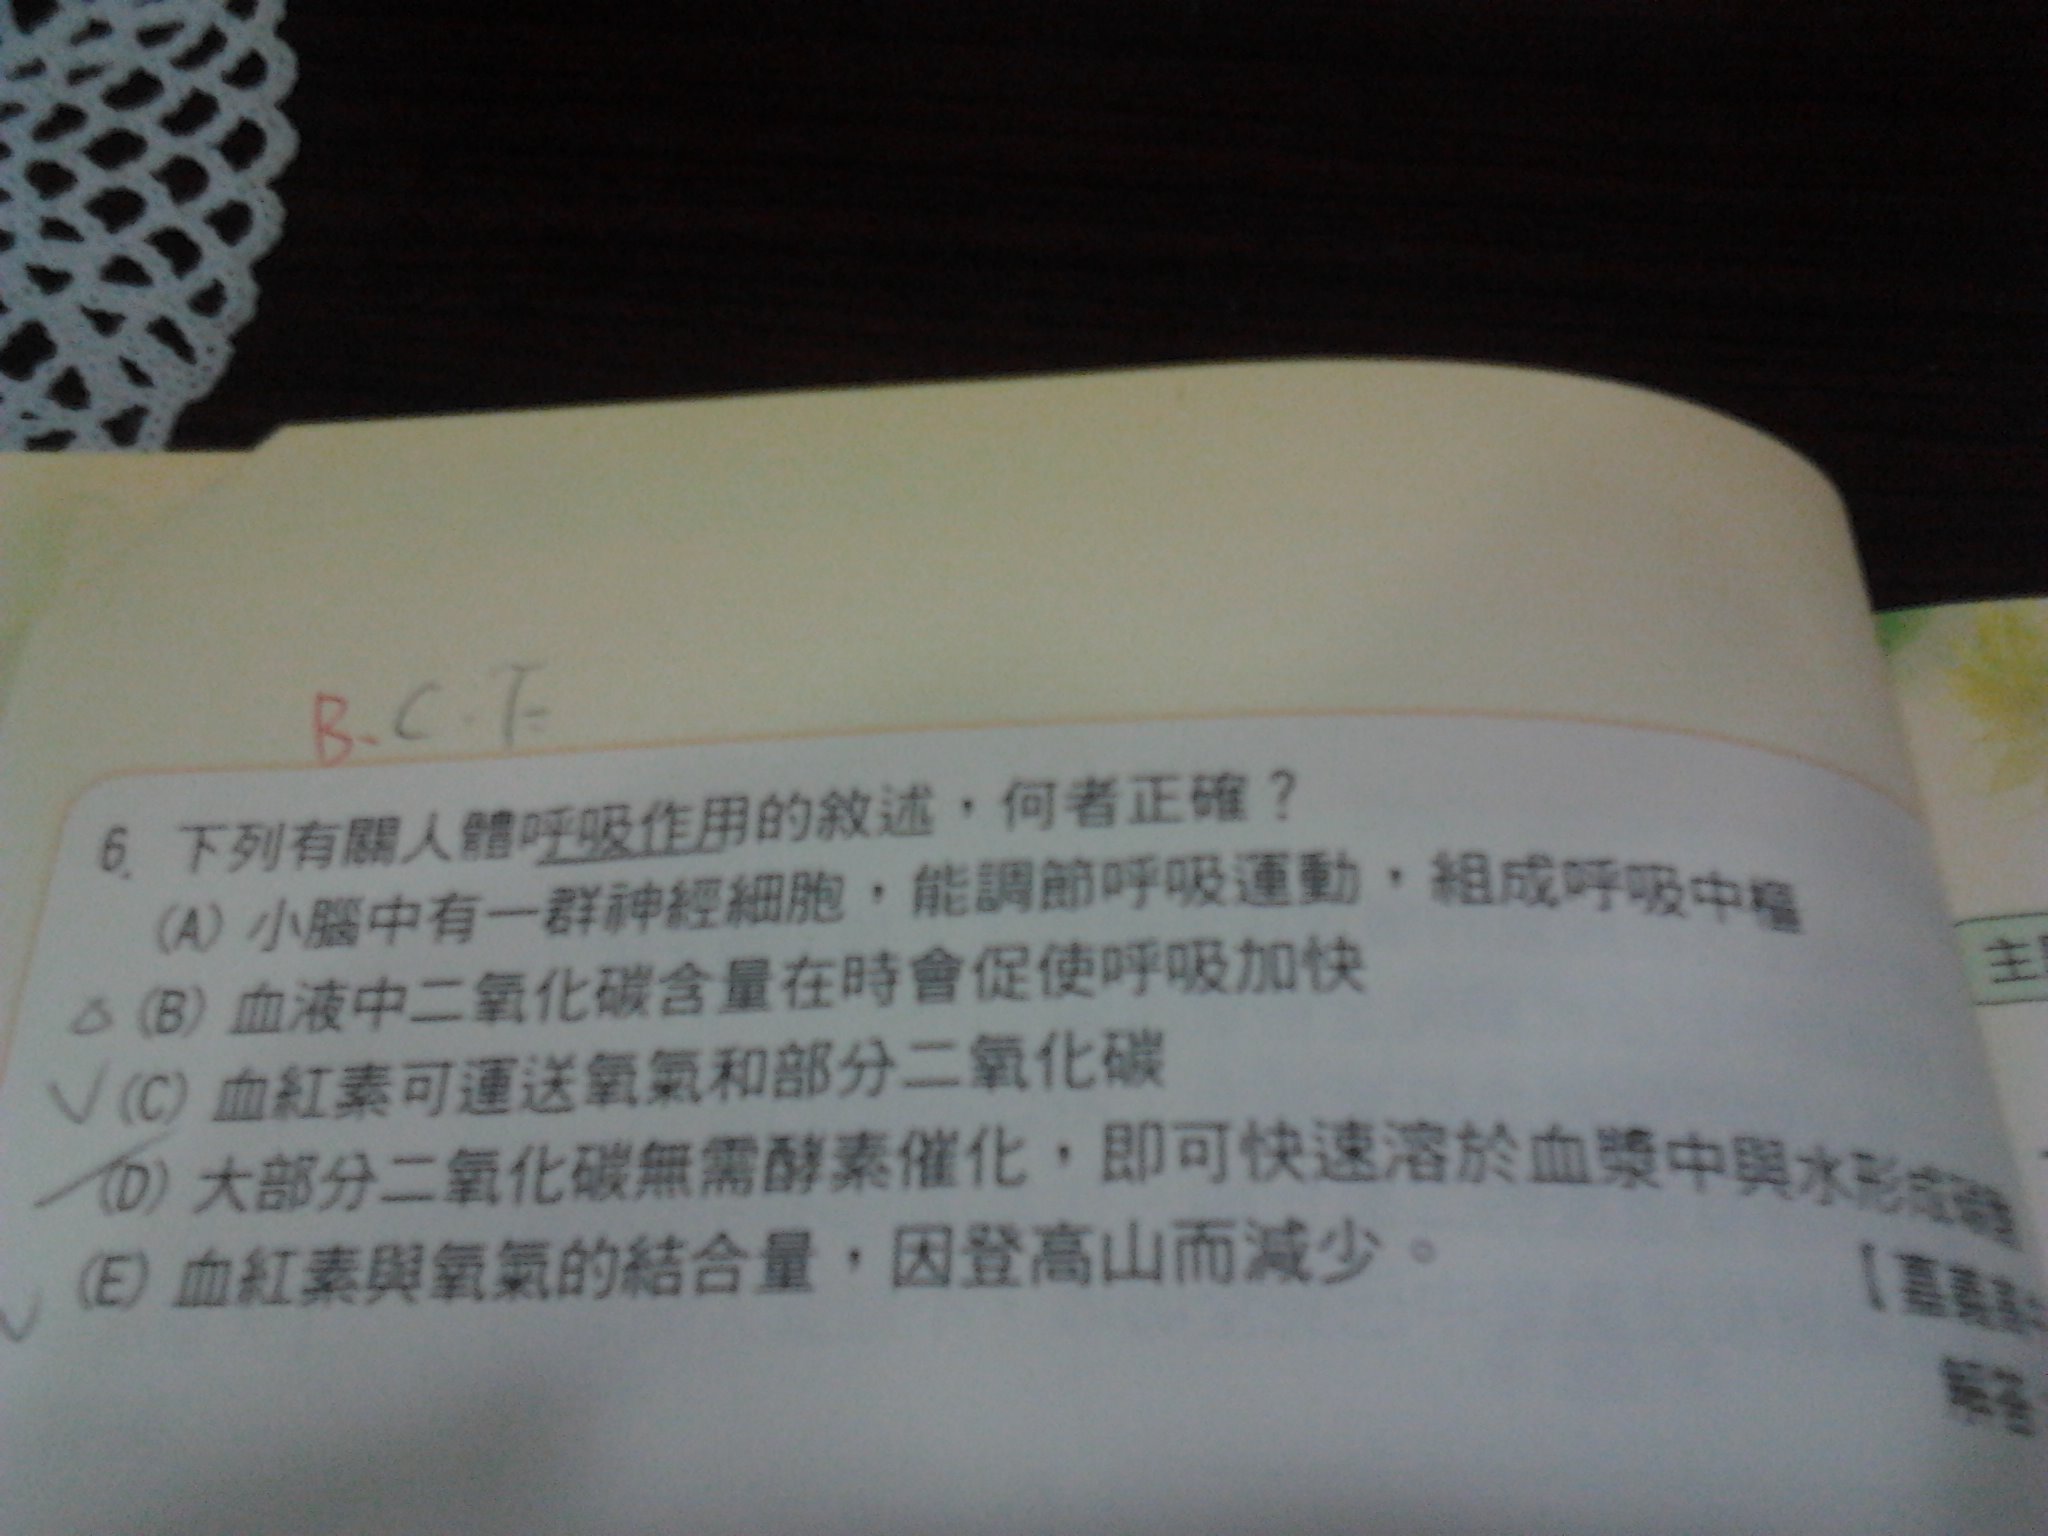 B. C. E
6. 下列有關人體呼吸作用的敘述，何者正確？
(A) 小腦中有一群神經細胞，能調節呼吸運動，組成呼吸中樞
(B) 血液中二氧化碳含量在時會促使呼吸加快
(C) 血紅素可運送氧氣和部分二氧化碳
(D) 大部分二氧化碳無需酵素催化，即可快速溶於血漿中與水形成碳
(E) 血紅素與氧氣的結合量，因登高山而減少。
【嘉義
解答
主